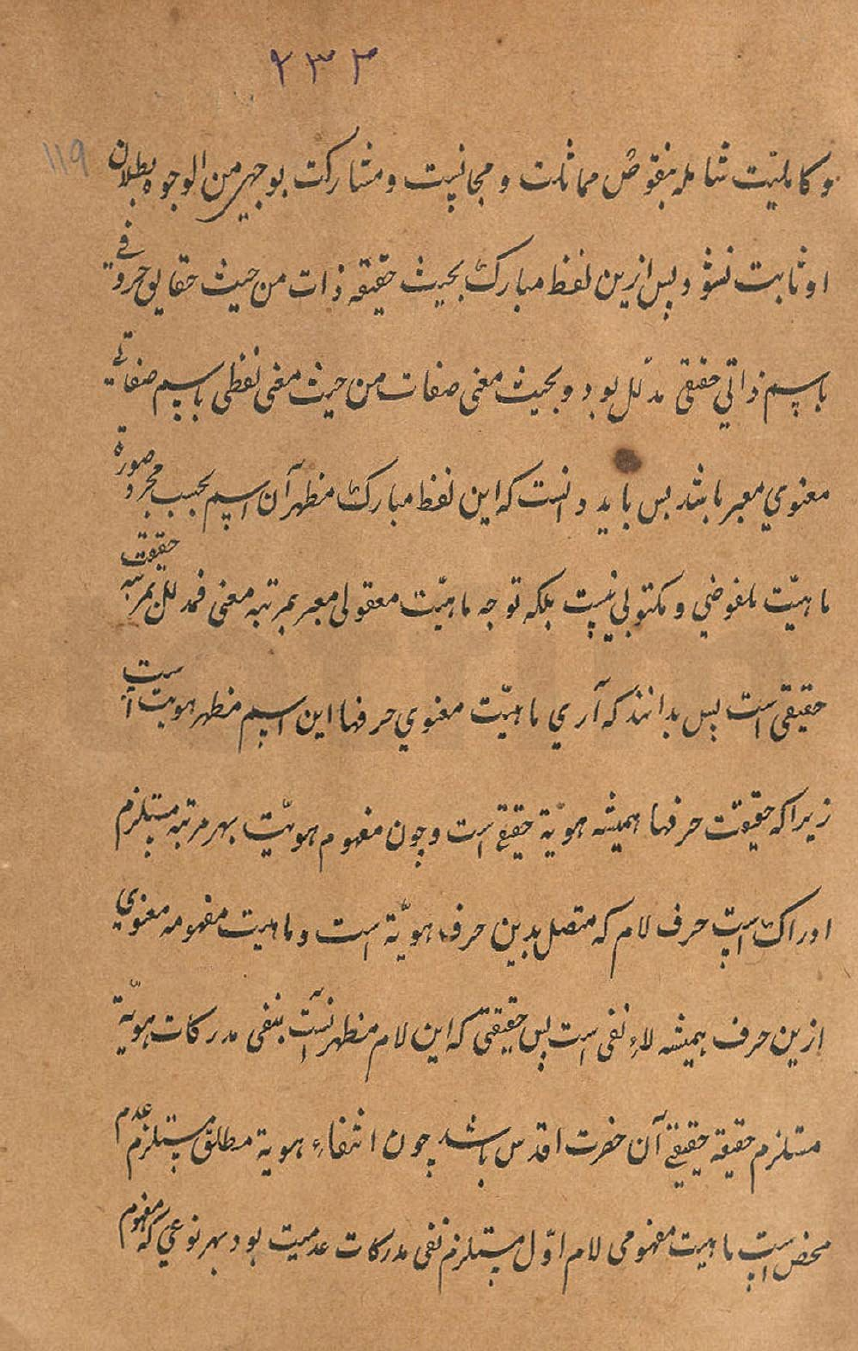 ۲۳۲
۱۱۹
و کاملیّت شامله بنقوض مماثلت و مجانست و مشارکت بوجهی من الوجوه بطلان
او ثابت نشود پس ازین لفظ مبارک بحیث حقیقه ذات من حیث حقایق حروفی
باسم ذاتی حقیقی مدلّل بود و بحیث معنی صفات من حیث معنی لفظی باسم صفاتی
معنوی معبر باشد پس باید دانست که این لفظ مبارک مظهر آن اسم بحسب مجرد صورة
ماهیّت ملفوضی و مکتوبی نیست بلکه توجه ماهیّت معقولی معبر بمرتبه معنی فمدلل بمرتبه حقیقت
حقیقی است پس بدانند که آری ماهیّت معنوی حرفها این اسم مظهر هویت است
زیرا که حقیقت حرفها همیشه هویّة حقیقی است و چون مفهوم هویّت بهر مرتبه مستلزم
ادراک است حرف لام که متصل بدین حرف هویّة است و ماهیت مفهومه معنوی
ازین حرف همیشه لاء نفی است پس حقیقتی که این لام مظهر آنست بنفی مدرکات هویّة
مستلزم حقیقة حقیقی آن حضرت اقدس باشد چون انتفاء هویة مطلق مستلزم عدم
محض است ماهیت مفهومی لام اوّل مستلزم نفی مدرکات عدمیت بود بهر نوعی که مفهوم